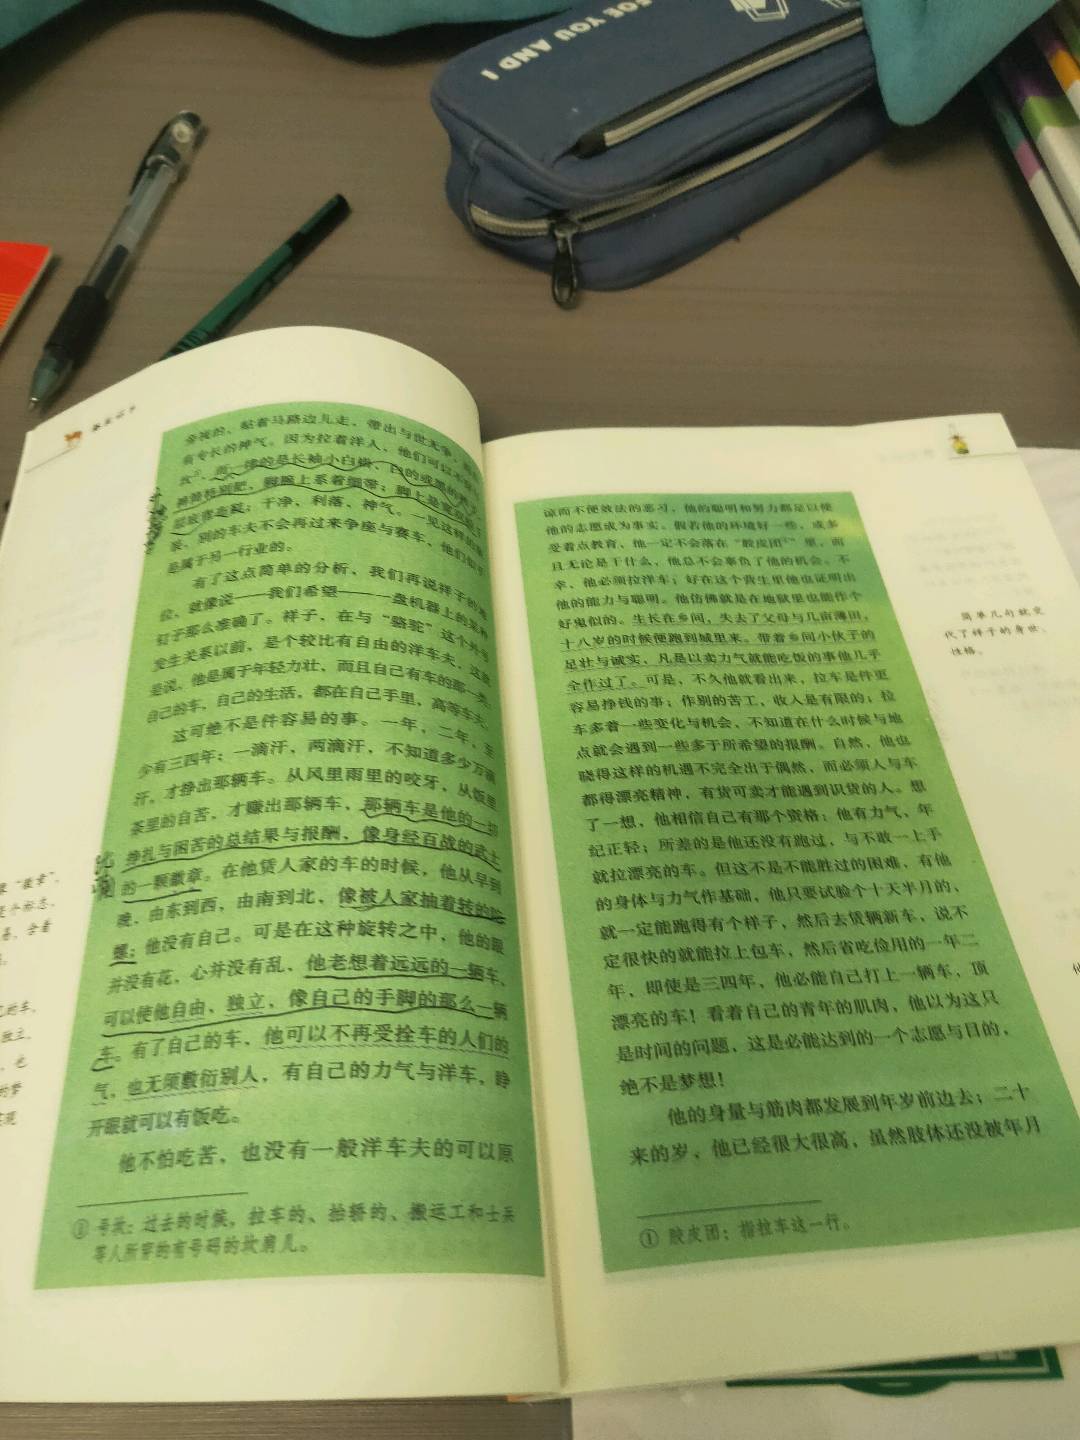 FOE YOU AND I
骆驼祥子
旁视的，贴着马路边儿走，带出与世无争，
有专长的神气。因为拉着洋人，他们可以不穿
一律的是长袖小白褂，白的或黑的裤
裤筒特别肥，脚腕上系着细带；脚上是宽双脸
层底青布鞋；干净，利落，神气。一见这样的
装，别的车夫不会再过来争座与赛车，他们似乎
是属于另一行业的。
有了这点简单的分析，我们再说祥子的地
位，就像说——我们希望——一盘机器上的某种
钉子那么准确了。祥子，在与“骆驼”这个外号
发生关系以前，是个较比有自由的洋车夫，这就
是说，他是属于年轻力壮，而且自己有车的那一类：
自己的车，自己的生活，都在自己手里，高等车夫。
这可绝不是件容易的事。一年，二年，至
少有三四年；一滴汗，两滴汗，不知道多少万滴
汗，才挣出那辆车。从风里雨里的咬牙，从饭里
茶里的自苦，才赚出那辆车，那辆车是他的一切
挣扎与困苦的总结果与报酬，像身经百战的武士
的一颗徽章。在他赁人家的车的时候，他从早到
晚，由东到西，由南到北，像被人家抽着转的陀
螺；他没有自己。可是在这种旋转之中，他的眼
并没有花，心并没有乱，他老想着远远的一辆车，
可以使他自由，独立，像自己的手脚的那么一辆
车。有了自己的车，他可以不再受拴车的人们的
气，也无须敷衍别人，有自己的力气与洋车，睁
开眼就可以有饭吃。
他不怕吃苦，也没有一般洋车夫的可以原
① 号坎：过去的时候，拉车的、抬轿的、搬运工和士兵
等人所穿的有号码的坎肩儿。
谅而不便效法的恶习，他的聪明和努力都足以使
他的志愿成为事实。假若他的环境好一些，或多
受着点教育，他一定不会落在“胶皮团①”里，而
且无论是干什么，他总不会辜负了他的机会。不
幸，他必须拉洋车；好在这个营生里他也证明出
他的能力与聪明。他仿佛就是在地狱里也能作个
好鬼似的。生长在乡间，失去了父母与几亩薄田，
十八岁的时候便跑到城里来。带着乡间小伙子的
足壮与诚实，凡是以卖力气就能吃饭的事他几乎
全作过了。可是，不久他就看出来，拉车是件更
容易挣钱的事；作别的苦工，收入是有限的；拉
车多着一些变化与机会，不知道在什么时候与地
点就会遇到一些多于所希望的报酬。自然，他也
晓得这样的机遇不完全出于偶然，而必须人与车
都得漂亮精神，有货可卖才能遇到识货的人。想
了一想，他相信自己有那个资格：他有力气，年
纪正轻；所差的是他还没有跑过，与不敢一上手
就拉漂亮的车。但这不是不能胜过的困难，有他
的身体与力气作基础，他只要试验个十天半月的，
就一定能跑得有个样子，然后去赁辆新车，说不
定很快的就能拉上包车，然后省吃俭用的一年二
年，即使是三四年，他必能自己打上一辆车，顶
漂亮的车！看着自己的青年的肌肉，他以为这只
是时间的问题，这是必能达到的一个志愿与目的，
绝不是梦想！
他的身量与筋肉都发展到年岁前边去；二十
来的岁，他已经很大很高，虽然肢体还没被年月
① 胶皮团：指拉车这一行。
简单几句就交
代了祥子的身世、
性格。